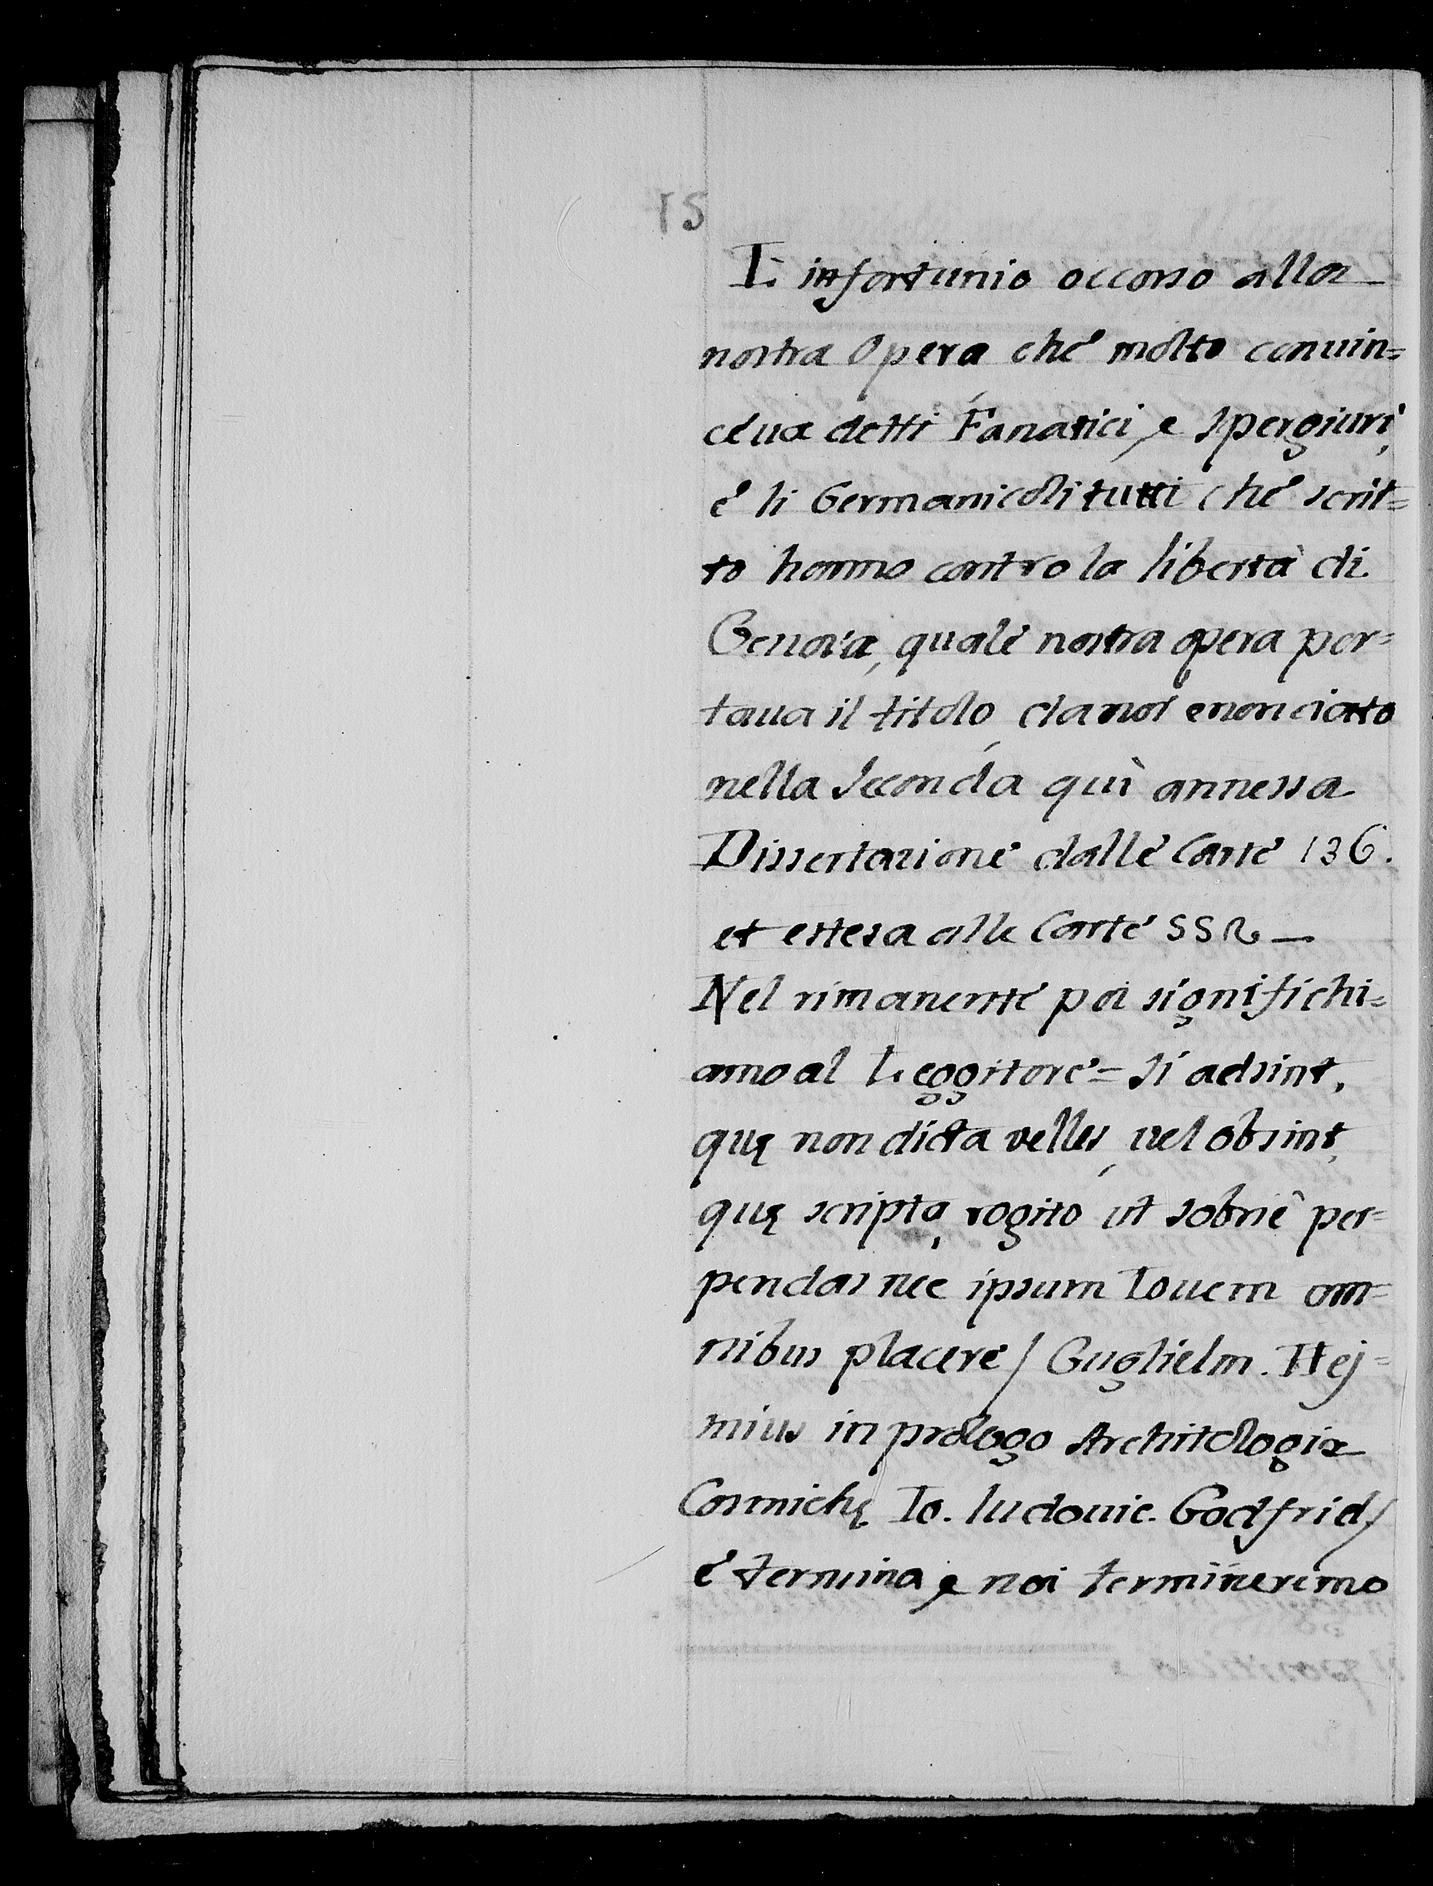 L'infortunio occorso alla
nostra Opera che molto conuin=
ceua detti Fanatici, e spergiuri,
e li Germanicoli tutti che scrit=
to hanno contro la libertà di
Genova, quale nostra opera por=
taua il titolo, da noi enonciato
nella seconda quì annessa
Dissertazione dalle Carte 136.
et estesa alle Carte 552 —
Nel rimanente poi significhi=
amo al Leggitore = si adsint,
quę non dicta velles, uel obsint,
quę scripta, rogito ut sobriè per=
pendas nec ipsum Iouem om=
nibus placere / Guglielm. Hej=
mius in prologo Archutologiæ
Cosmichę Io. ludouic. Godfrid/
e termina, e noi termineremo